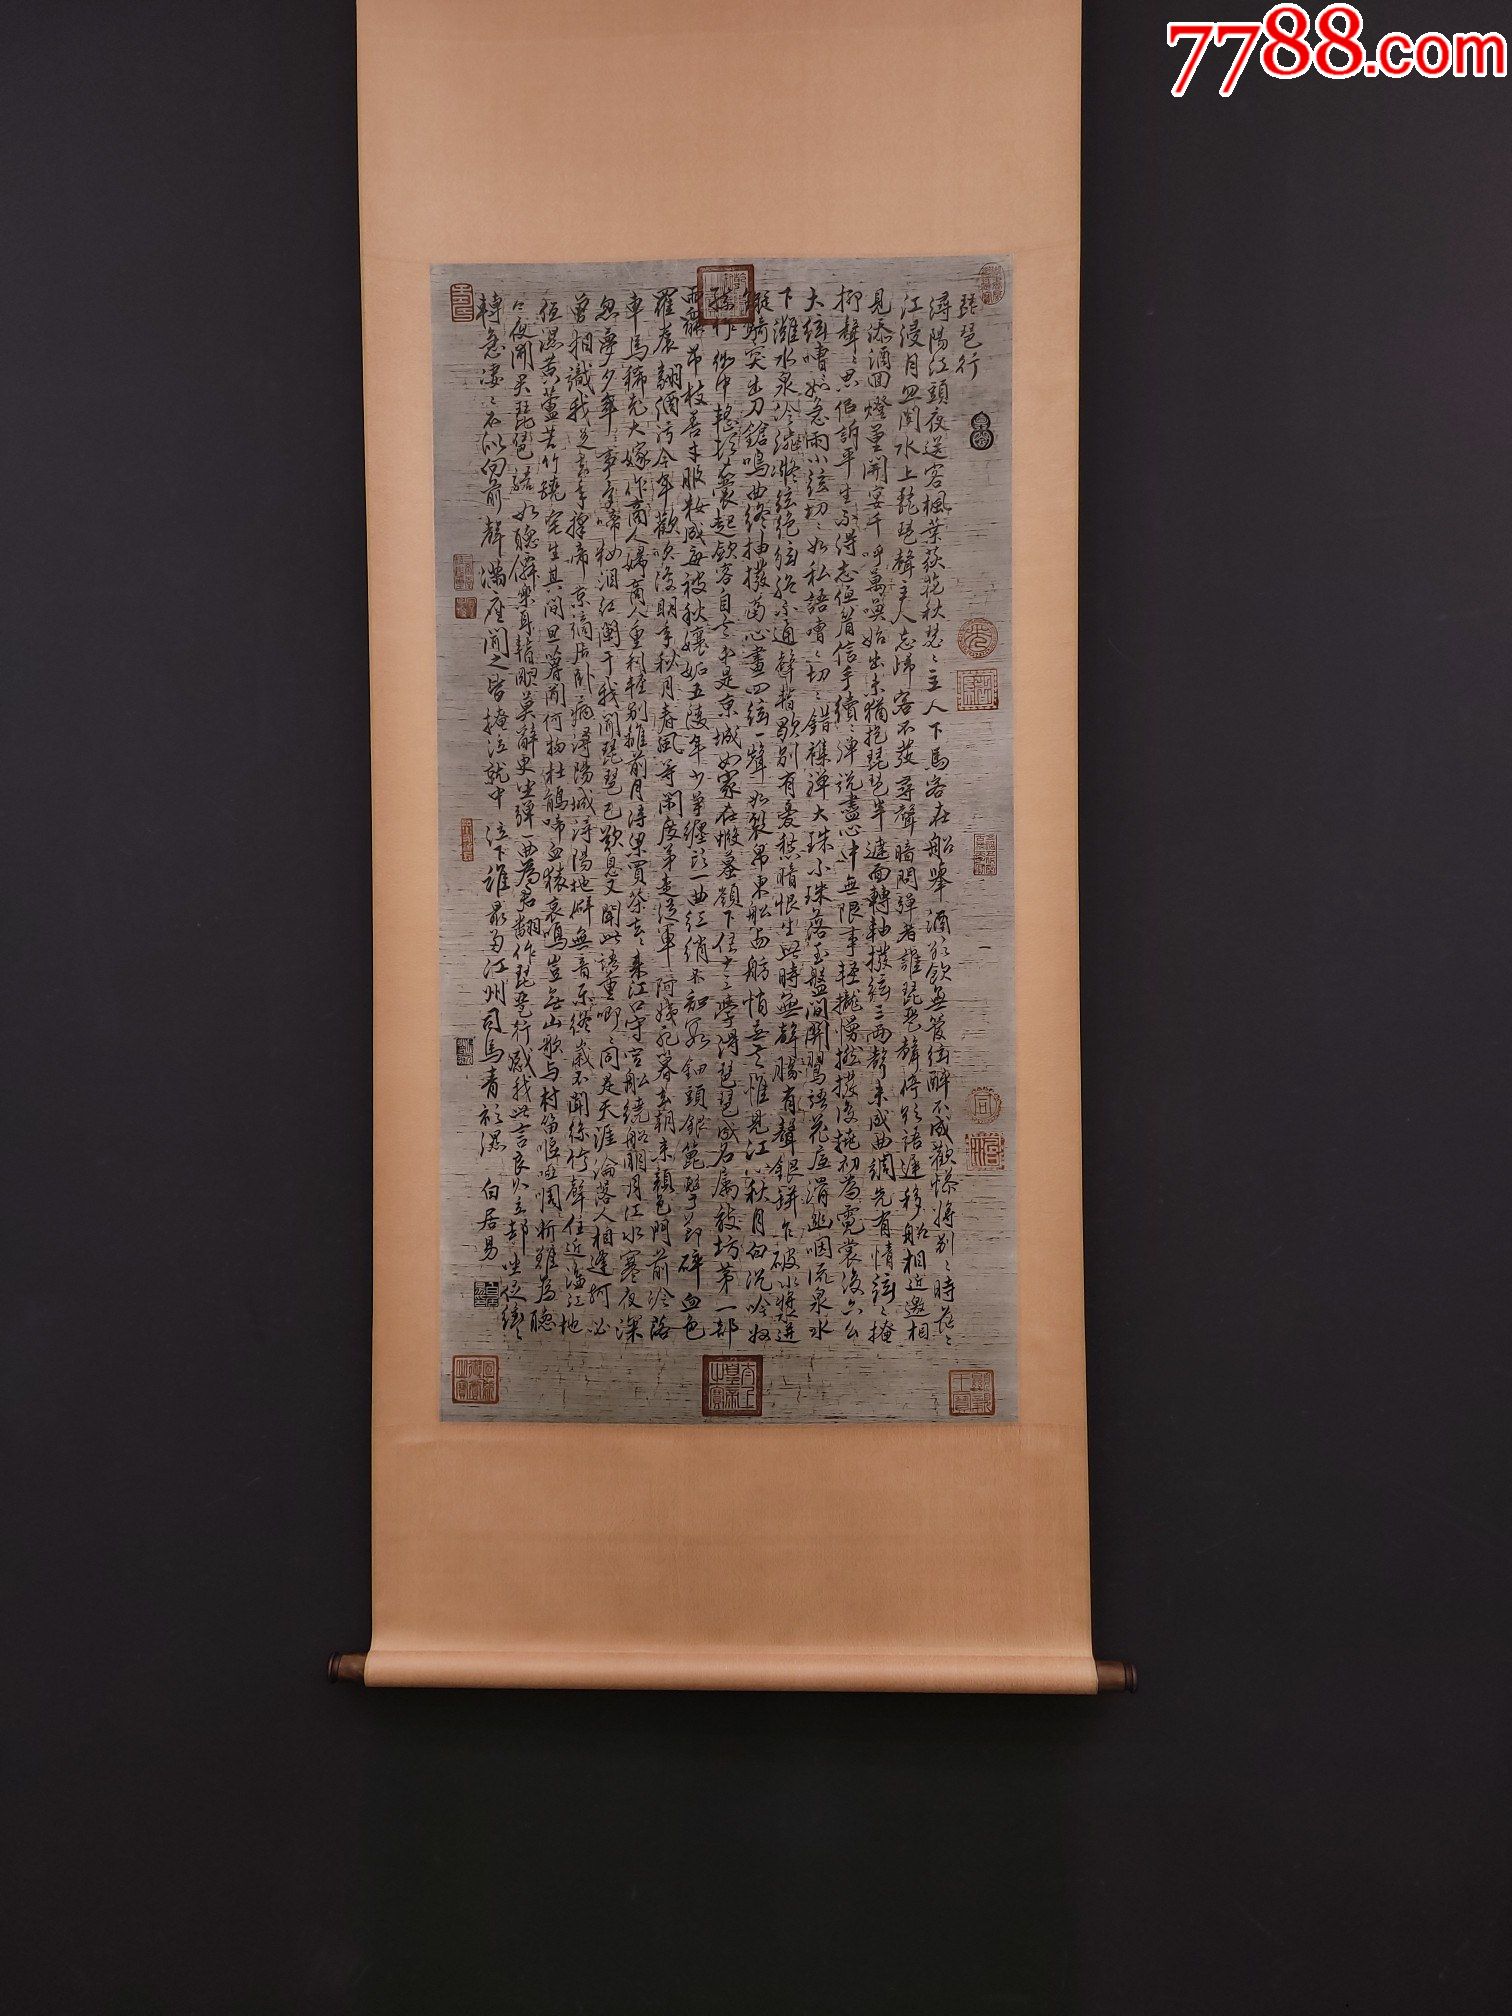 7788.com
琵琶行
潯陽江頭夜送客楓葉荻花秋瑟〻主人下馬客在船舉酒欲飲無管絃醉不成歡慘將別〻時茫〻
江浸月忽聞水上琵琶聲主人忘歸客不發尋聲暗問彈者誰琵琶聲停欲語遲移船相近邀相
見添酒回燈重開宴千呼萬喚始出來猶抱琵琶半遮面轉軸撥絃三兩聲未成曲調先有情絃〻掩
抑聲〻思似訴平生不得志低眉信手續〻彈說盡心中無限事輕攏慢撚撥復挑初為霓裳後六么
大絃嘈〻如急雨小絃切〻如私語嘈〻切〻錯雜彈大珠小珠落玉盤間關鶯語花底滑幽咽流泉水
下灘水泉冷澀凝絃絕絃絕不通聲暫歇別有憂愁暗恨生此時無聲勝有聲銀瓶乍破水漿迸
鐵騎突出刀鎗鳴曲終抽撥當心畫四絃一聲如裂帛東船西舫悄無言惟見江心秋月白沉吟放
絃中整頓衣裳起歛容自言本是京城女家在蝦蟇嶺下住十三學得琵琶成名屬教坊第一部
善才服粧成每被秋娘妬五陵年少爭纏頭一曲紅綃不知數鈿頭銀篦擊節碎血色
羅裙翻酒污今年歡笑復明年秋月春風等閑度弟走從軍阿姨死暮去朝來顏色門前冷落
車馬稀老大嫁作商人婦商人重利輕別離前月浮梁買茶去〻來江口守空船繞船明月江水寒夜深
忽夢少年事夢啼粧淚紅闌干我聞琵琶已歎息又聞此語重唧〻同是天涯淪落人相逢何必
曾相識我從去年辭帝京謫居臥病潯陽城潯陽地僻無音樂終歲不聞絲竹聲住近湓江地
低濕黃蘆苦竹繞宅生其間旦暮聞何物杜鵑啼血猿哀鳴豈無山歌与村笛嘔啞嘲哳難為聽
今夜聞君琵琶語如聽僊樂耳暫明莫辭更坐彈一曲為君翻作琵琶行感我此言良久立却坐促絃〻
轉急淒〻不似向前聲滿座聞之皆掩泣就中泣下誰最多江州司馬青衫濕 白居易
太上皇帝之寶